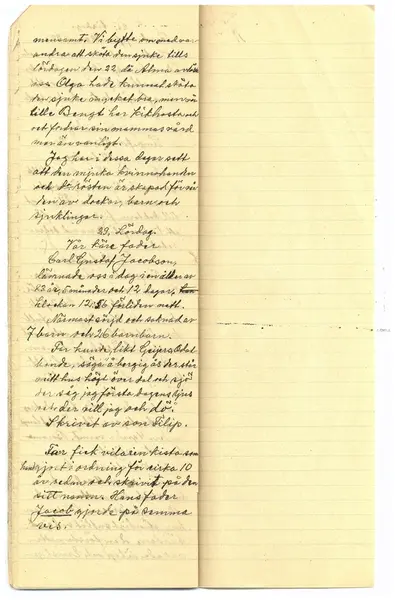 mensamt. Vi bytte om med var
andra att sköta den sjuke tills
lördagen den 22 då Alma avlöste
oss Olga hade kunnat sköta
den sjuke mycket bra, men vår
lille Bengt har kikhosta och
det fordrar sin mammas vård
mer än vanligt.
Jag har i dessa dagar sett
att den mjuka kvinnohanden
och rösten är skapad för vår
den av docker, barn och
sjuklingar.
29. Lördag.
Vår käre fader
Carl Gustaf Jacobson,
lämnade oss i dag i en ålder av
82 år, 5 månader och 12 dagar,
klockan 12.56 förliden natt.
Närmast sörjd och saknad av
7 barn och 26 barnbarn.
Far kunde, likt Geijers Odal
bonde, säga å bergig ås der står
mitt hus högt över dal och sjö
der såg jag första dagens ljus
der vill jag och dö.
Skrivet av son Filip.
Far fick vila i en kista som
han gjort i ordning för cirka 10
år sedan och skrivit på den
sitt namn. Hans fader
Jacob gjorde på samma
vis.